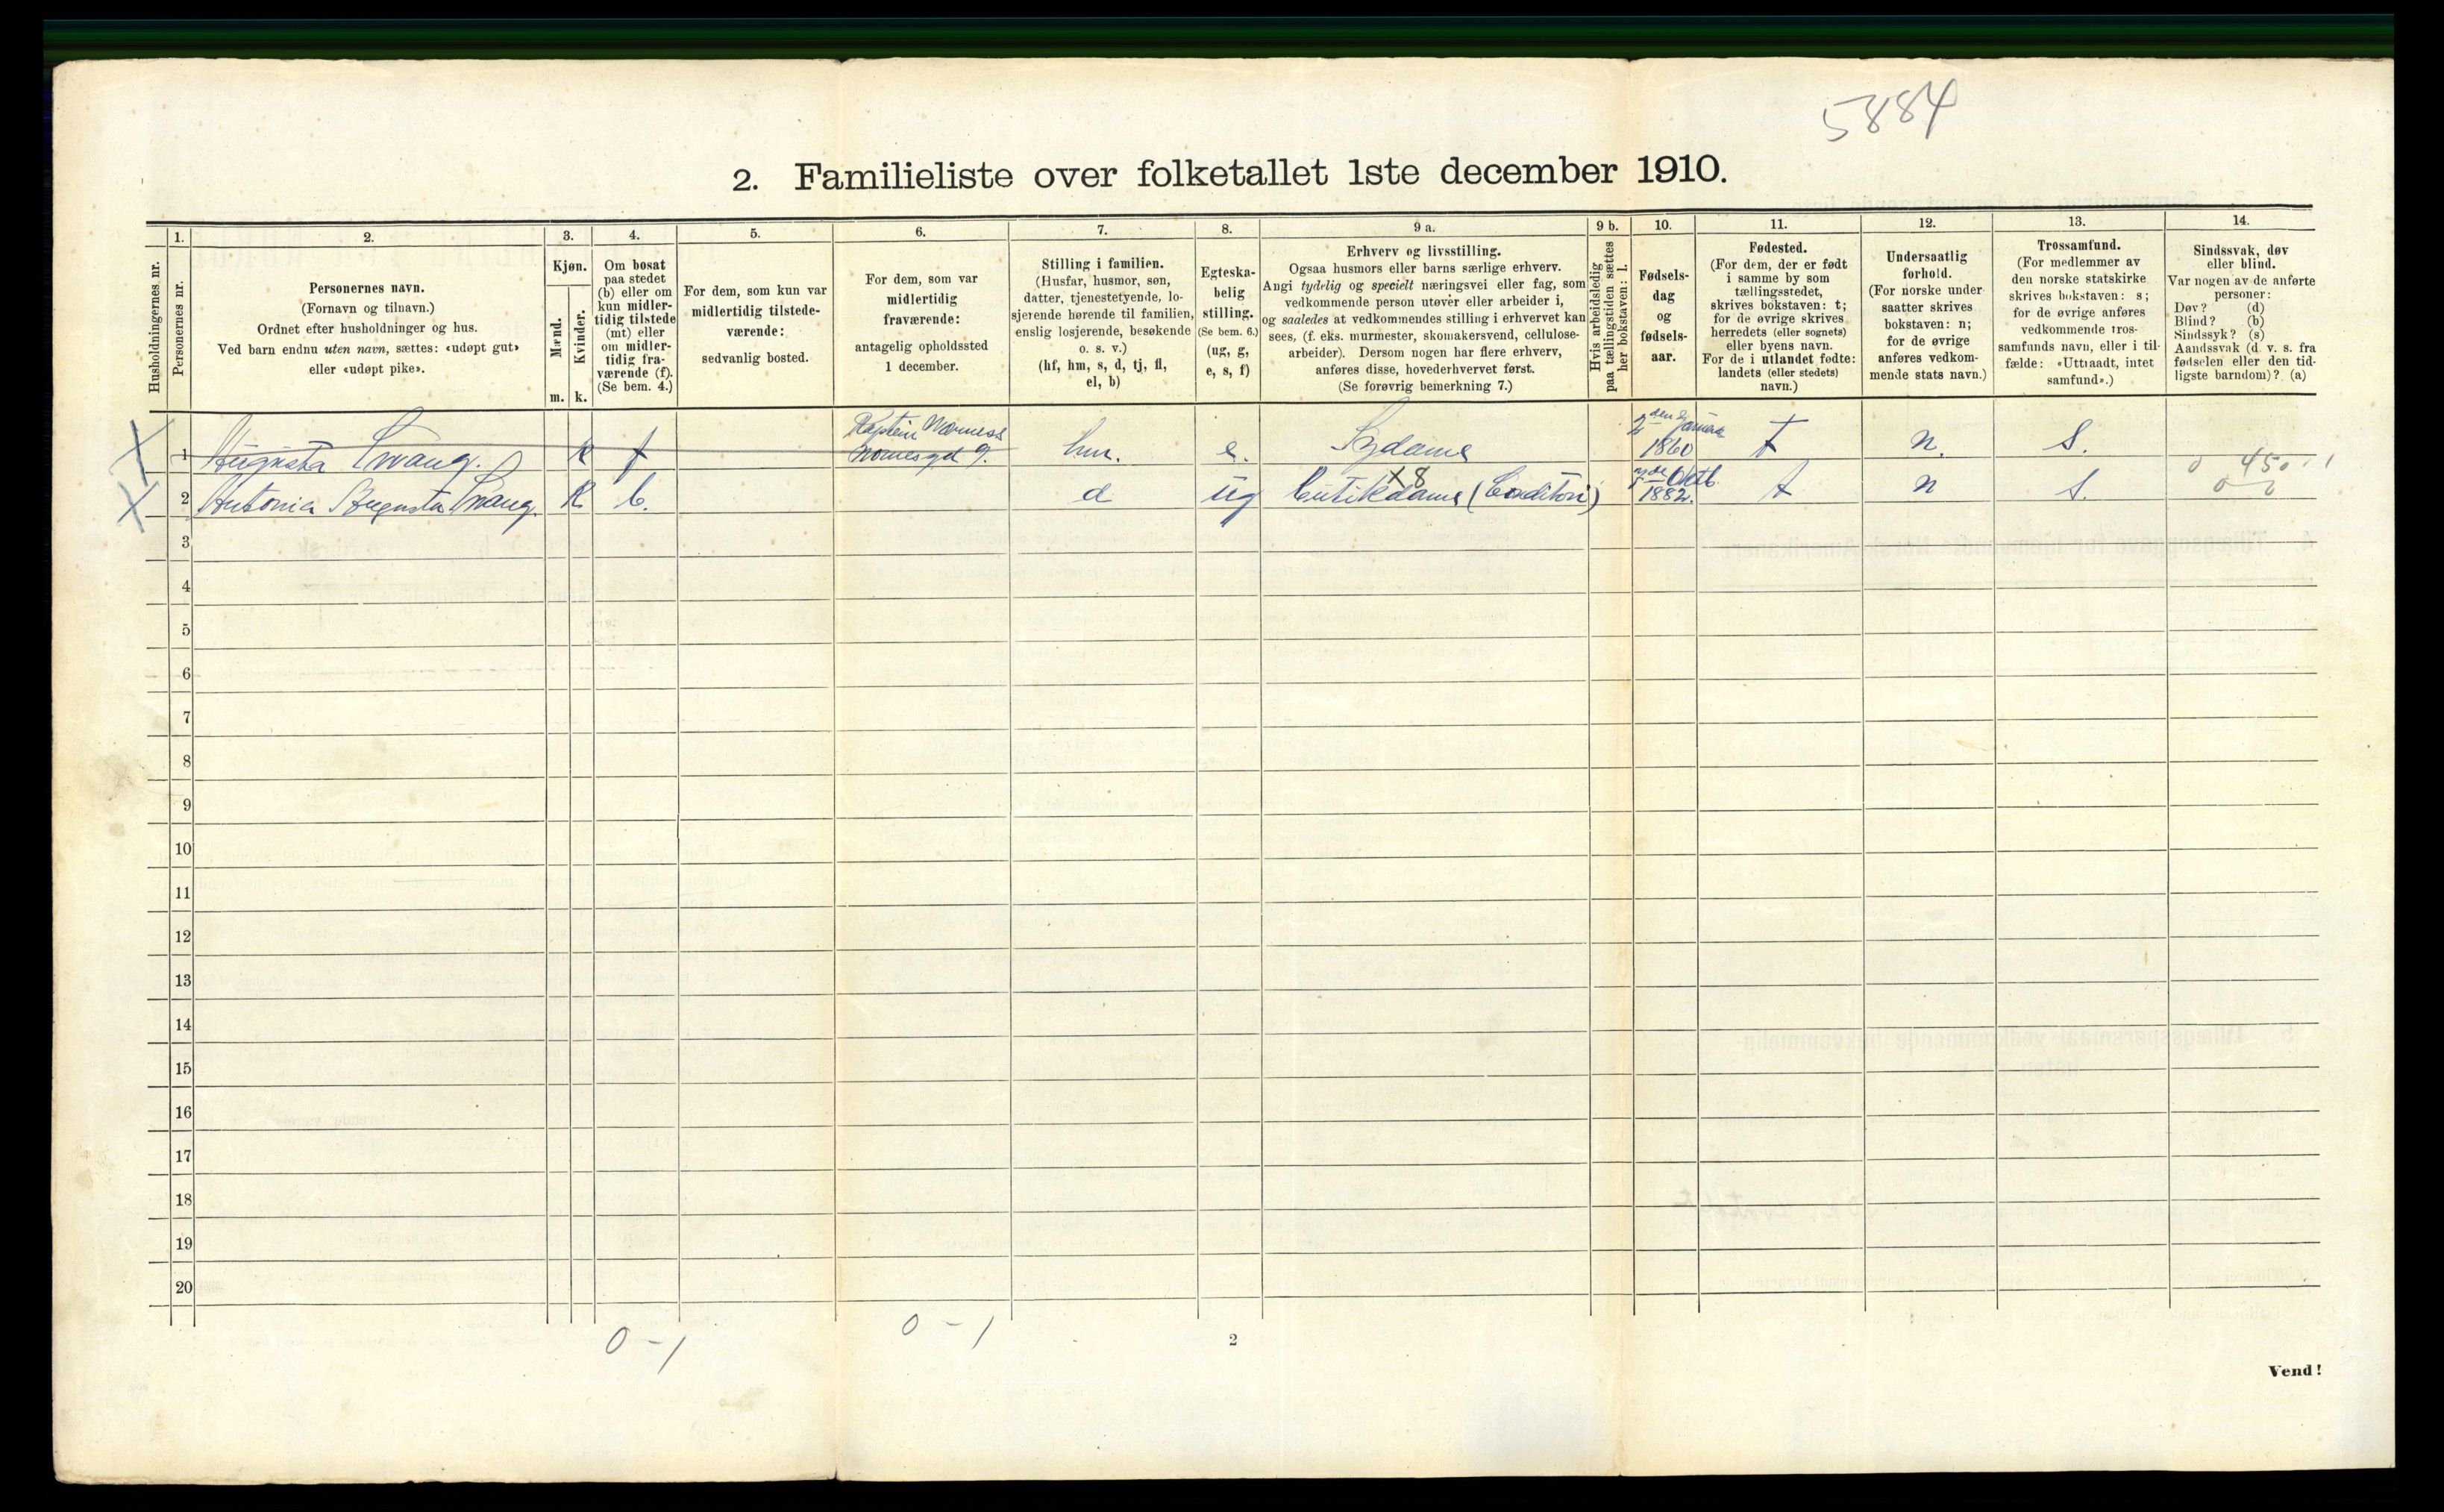 5884
2. Familieliste over folketallet 1ste december 1910.
Husholdningernes nr.
1.
Personernes nr.
2.
Personernes navn.
(Fornavn og tilnavn.)
Ordnet efter husholdninger og hus.
Ved barn endnu uten navn, sættes: «udøpt gut»
eller «udøpt pike».
3.
Kjøn.
Mænd.
Kvinder.
m. k.
4.
Om bosat
paa stedet
(b) eller om
kun midler-
tidig tilstede
(mt) eller
om midler-
tidig fra-
værende (f).
(Se bem. 4.)
5.
For dem, som kun var
midlertidig tilstede-
værende:
sedvanlig bosted.
6.
For dem, som var
midlertidig
fraværende:
antagelig opholdssted
1 december.
7.
Stilling i familien.
(Husfar, husmor, søn,
datter, tjenestetyende, lo-
sjerende hørende til familien,
enslig losjerende, besøkende
o. s. v.)
(hf, hm, s, d, tj, fl,
el, b)
8.
Egteska-
belig
stilling.
(Se bem. 6.)
(ug, g,
e, s, f)
9 a.
Erhverv og livsstilling.
Ogsaa husmors eller barns særlige erhverv.
Angi tydelig og specielt næringsvei eller fag, som
vedkommende person utøver eller arbeider i,
og saaledes at vedkommendes stilling i erhvervet kan
sees, (f. eks. murmester, skomakersvend, cellulose-
arbeider). Dersom nogen har flere erhverv,
anføres disse, hovederhvervet først.
(Se forøvrig bemerkning 7.)
9 b.
Hvis arbeidsledig
paa tællingstiden sættes
her bokstaven: l.
10.
Fødsels-
dag
og
fødsels-
aar.
11.
Fødested.
(For dem, der er født
i samme by som
tællingsstedet,
skrives bokstaven: t;
for de øvrige skrives
herredets (eller sognets)
eller byens navn.
For de i utlandet fødte:
landets (eller stedets)
navn.)
12.
Undersaatlig
forhold.
(For norske under-
saatter skrives
bokstaven: n;
for de øvrige
anføres vedkom-
mende stats navn.)
13.
Trossamfund.
(For medlemmer av
den norske statskirke
skrives bokstaven: s;
for de øvrige anføres
vedkommende tros-
samfunds navn, eller i til-
fælde: «Uttraadt, intet
samfund».)
14.
Sindssvak, døv
eller blind.
Var nogen av de anførte
personer:
Døv? (d)
Blind? (b)
Sindssyk? (s)
Aandssvak (d. v. s. fra
fødselen eller den tid-
ligste barndom)? (a)
1 Augusta Svang. k f Kaptein hm. e. Sydame 2den Januar 1860 t n. s.
2 Antonia Augusta Svang. k b. d ug Butikdame (Conditori) X8 Oktb. 1882. t n s. 0 0
450
3
4
5
6
7
8
9
10
11
12
13
14
15
16
17
18
19
20
0 - 1
0 - 1
2
Vend!